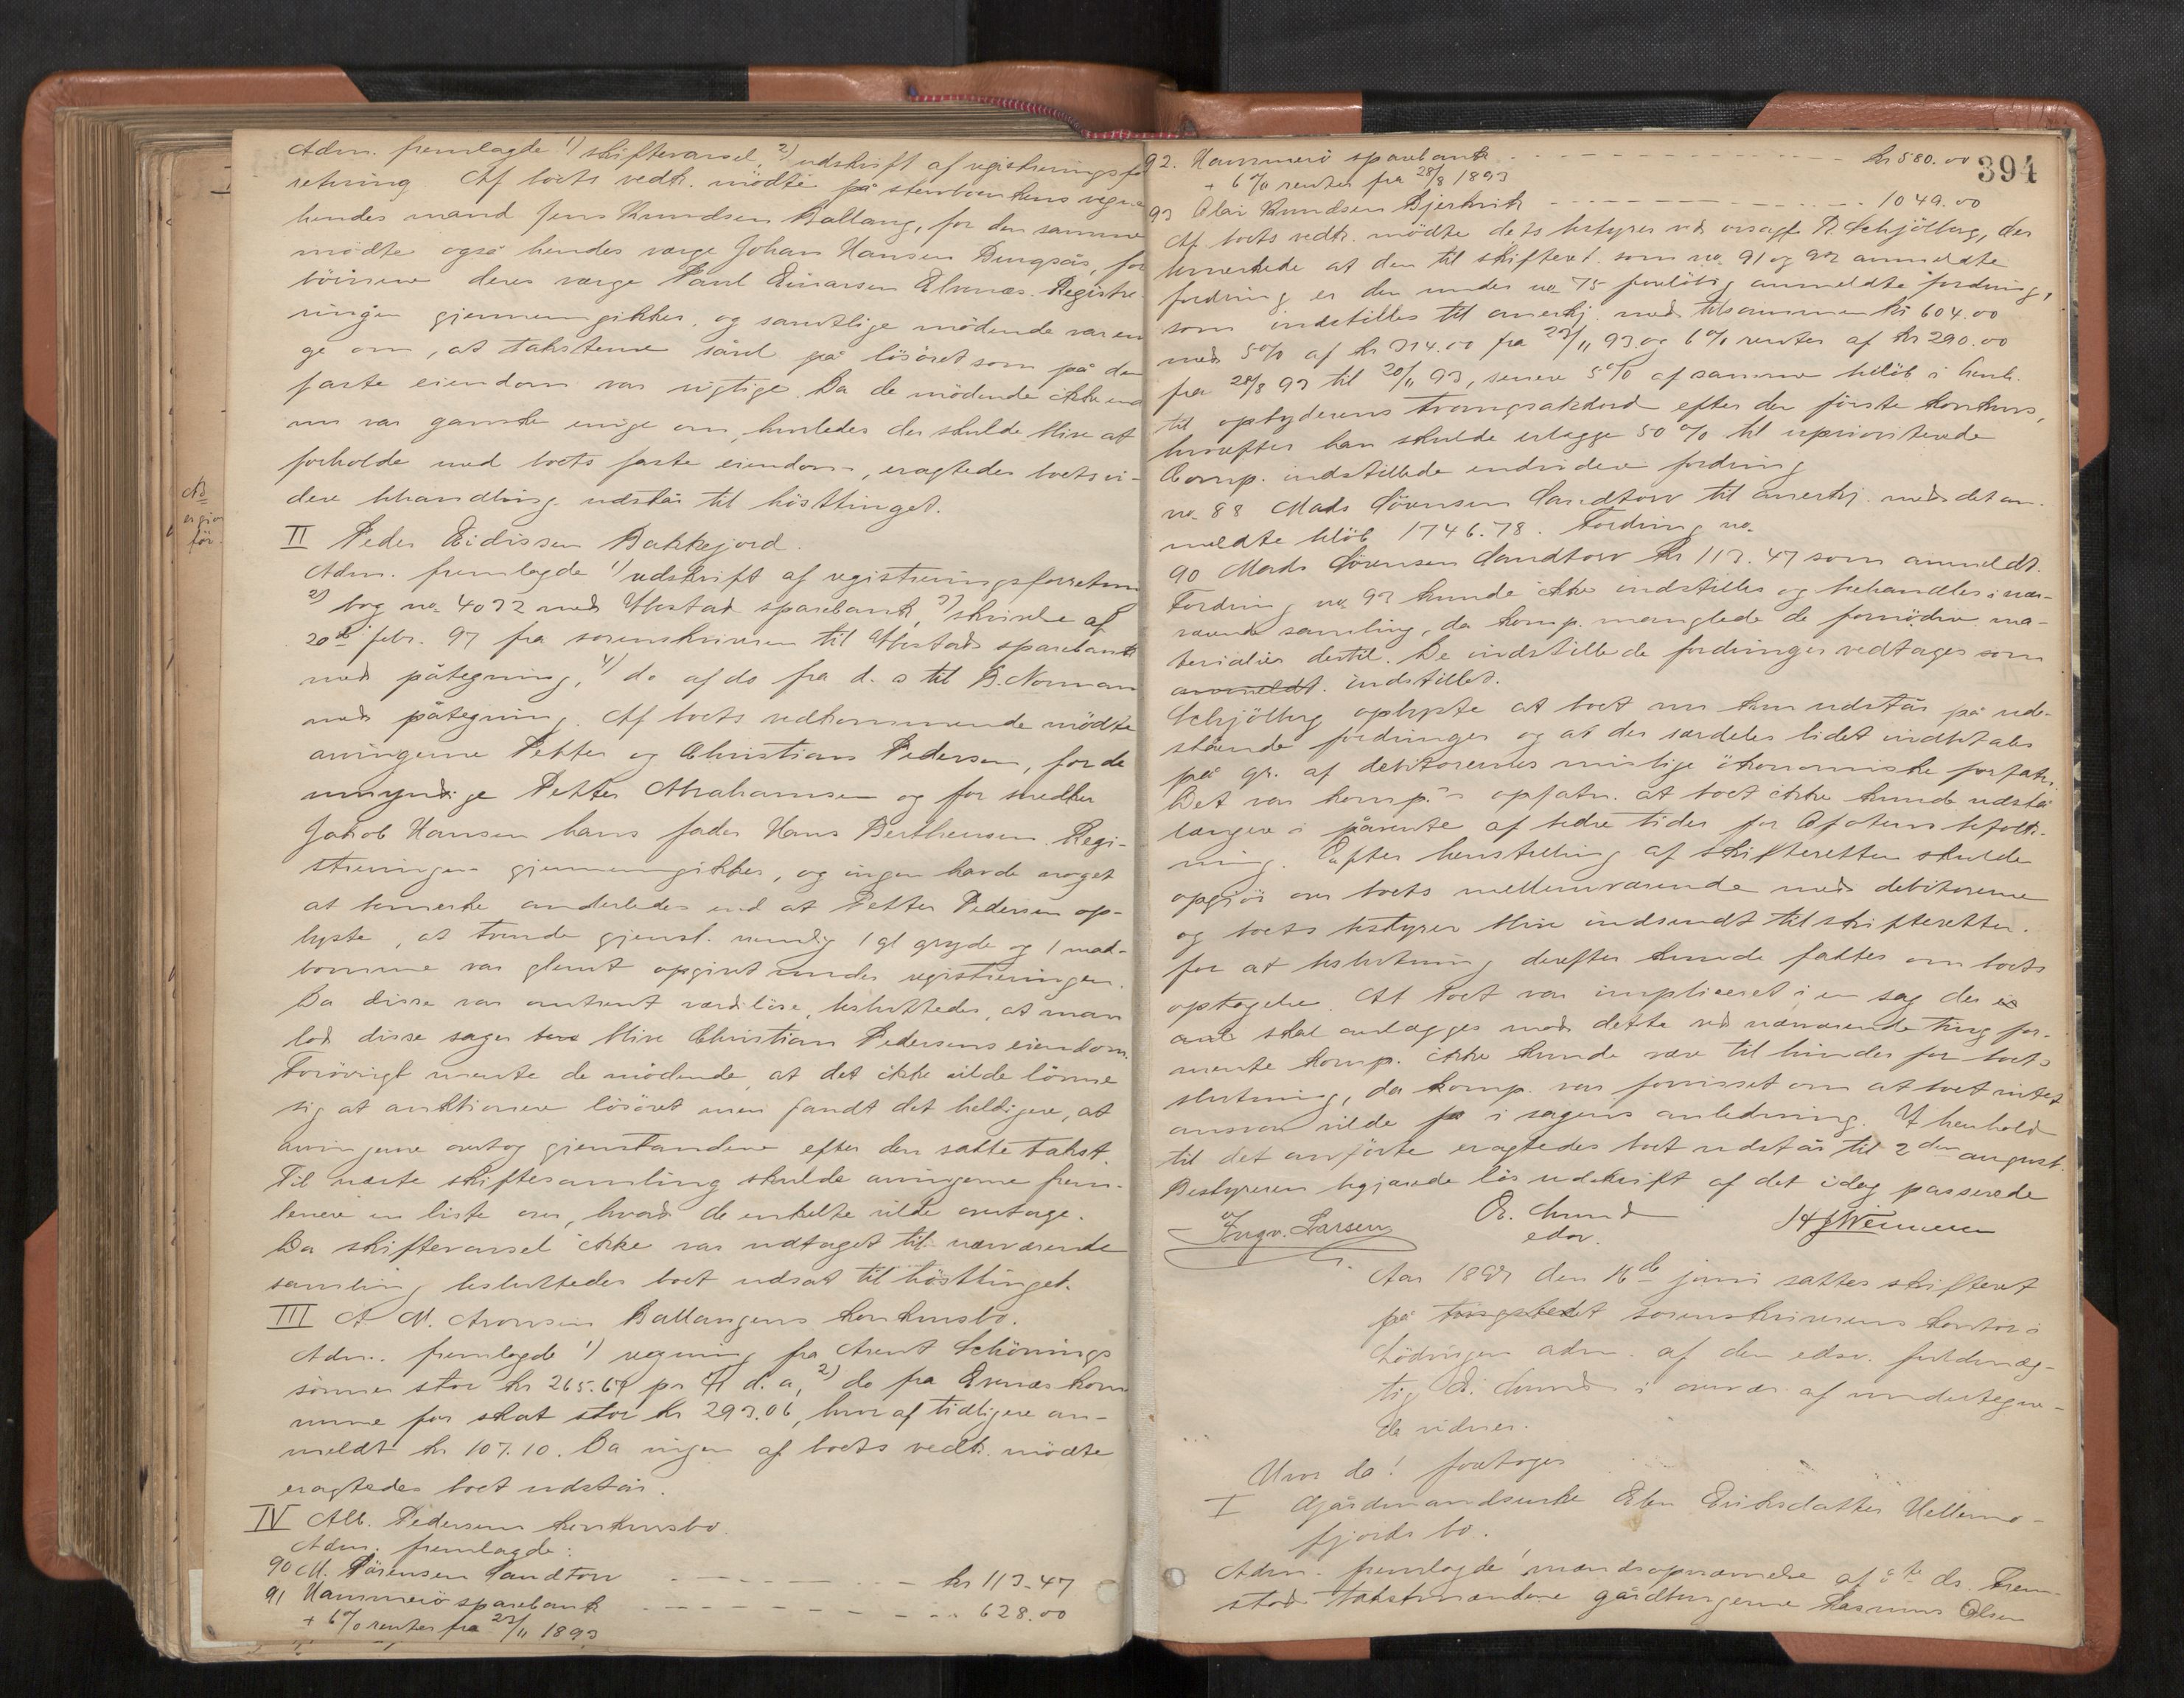 Adm. fremlagde 1) skiftevarsel, 2) udskrift af registreringsfor
retning Af boets vedk. mödte på stervboenkens vegne
hendes mand Jens Knudsen Ballang, for den samme
mödte også hendes værge Johan Hansen , for
börnene deres værge Paul Einarsen Elvenes. Registre
ringen gjennemgikkes, og samtlige mödende var en
ge om, at taksterne såvel på lösöret som på den
faste eiendom var rigtige. Da de mödende ikke end
nu var ganske enige om, hvorledes der skulde blive at
forholde med boets faste eiendom, eragtedes boets vi-
dere behandling udstår til hösttinget.
II Peder Eidissen Bakkejord.
Adm. fremlagde 1) udskrift af registreringsforretnin
2) bog no. 4032 med Ibestad sparebank, 3) skrivelse af
20de febr. 97 fra sorenskriveren til Ibestads sparebank
med påtegning, 4) do af do fra d. s til B. Norman
med påtegning. Af boets vedkommende mödte
arvingerne Petter og Christian Pedersen, for de
umyndige Petter Abrahamsen og for snedker
Jakob Hansen hans fader Hans Berthensen. Regi-
streringen gjennemgikkes, og ingen havde noget
at bemerke anderledes end at Petter Pedersen op-
lyste, at tvende gjenst. nemlig 1 gl gryde og 1 mad-
bomme var glemt opgivet under registreringen.
Da disse var omtrent værdilöse, besluttedes, at man
lod disse sager blive Christian Pedersens eiendom.
Forövrigt mente de mödende, at det ikke vilde lönne
sig at auktionere lösöret men fandt det heldigere, at
arvingerne overtog gjenstandene efter den satte takst.
Til næste skiftesamling skulde arvingerne frem-
levere en liste over, hvad de enkelte vilde overtage.
Da skiftevarsel ikke var udtaget til nærværende
samling besluttedes boet udsat til hösttinget.
III A M. Aronsen Ballangens konkursbo.
Adm. fremlagde 1) regning fra Arent Schönings
sönner stor kr 265.67 pr d. a, 2) do fra Evenæs kom
mune for skat stor kr 293.06, hvoraf tidligere an-
meldt kr 107.10. Da ingen af boets vedk. mödte
eragtedes boet udstår.
IV Alb. Pedersens konkursbo
Adm. fremlagde:
90 M. Sörensen Sandtorv kr 113.47
91 Hammerö sparebank 628.00
+ 6% renter fra 23/11 1893
394
92. Hammerö sparebank kr 580.00
+ 6% renter fra 28/8 1893
93 Olai Knudsen Bjerkvik 1049.00
Af boets vedk. mödte dets bestyrer ved Schjölberg, der
bemerkede at den til skifteret. som no. 91 og 92 anmeldte
fordring er den under no. 75 forelöbig anmeldte fordring,
som indstilles til anerkj. med tilsammen kr 604.00
med 5% af kr 314.00 fra 23/11 93 og 6% renter af kr 290.00
fra 28/8 93 til 20/11 93, senere 5% af samme belöb i henh.
til opbyderens tvangsakkord efter den förste konkurs,
hvorefter han skulde erlægge 50% til uprioriterede
Comp. indstillede endvidere fordring
no. 88 Mads Sörensen Sandtorv til anerkj. med det an-
meldte belöb 1746.78. Fordring no.
90 Mads Sörensen Sandtorv kr 113.47 som anmeldt.
Fordring no. 93 kunde ikke indstilles og behandles i nær-
værende samling, da komp. manglede de fornödne ma-
terialier dertil. De indstillede fordringer vedtages som
anmeldt. indstillet.
Schjölberg oplyste at boet nu kun udstår på ude-
stående fordringer og at der særdeles lidet indbetales
på gr. af debitorernes mislige ökonomiske forfatn.
Det var komp.s opfatn. at boet ikke kunde udstå
længere i påvente af bedre tider for Ofotens befolk-
ning. Efter henstilling af skifteretten skulde
opgjör over boets mellemværende med debitorerne
og boets bestyrer blive indsendt til skifteretten.
for at beslutning derefter kunde fattes om boets
optagelse. At boet var impliceret i en sag der
skal anlægges mod dette ved nærværende ting for-
mente komp. ikke kunde være til hinder for boets
slutning, da komp. var forvisset om at boet intet
ansvar vilde få i sagens anledning. I henhold
til det anförte eragtedes boet udstår til 2den august.
Bestyreren begjærede lös udskrift af det idag passerede
Ingv. Larsen
edsv.
Aar 1897 den 16de juni sattes skifteret
på tingstedet sorenskriverens kontor i
Lödingen adm. af den edsv. fuldmæg-
tig i overvær af undertegne-
de vidner.
Hvor da! foretoges
I Gårdmandsenke Elen Eriksdatter Hellemo-
fjords bo.
Adm. fremlagde mandsopnævnelse af ds. Frem-
stod takstmændene gårdbrugerne Rasmus Olsen